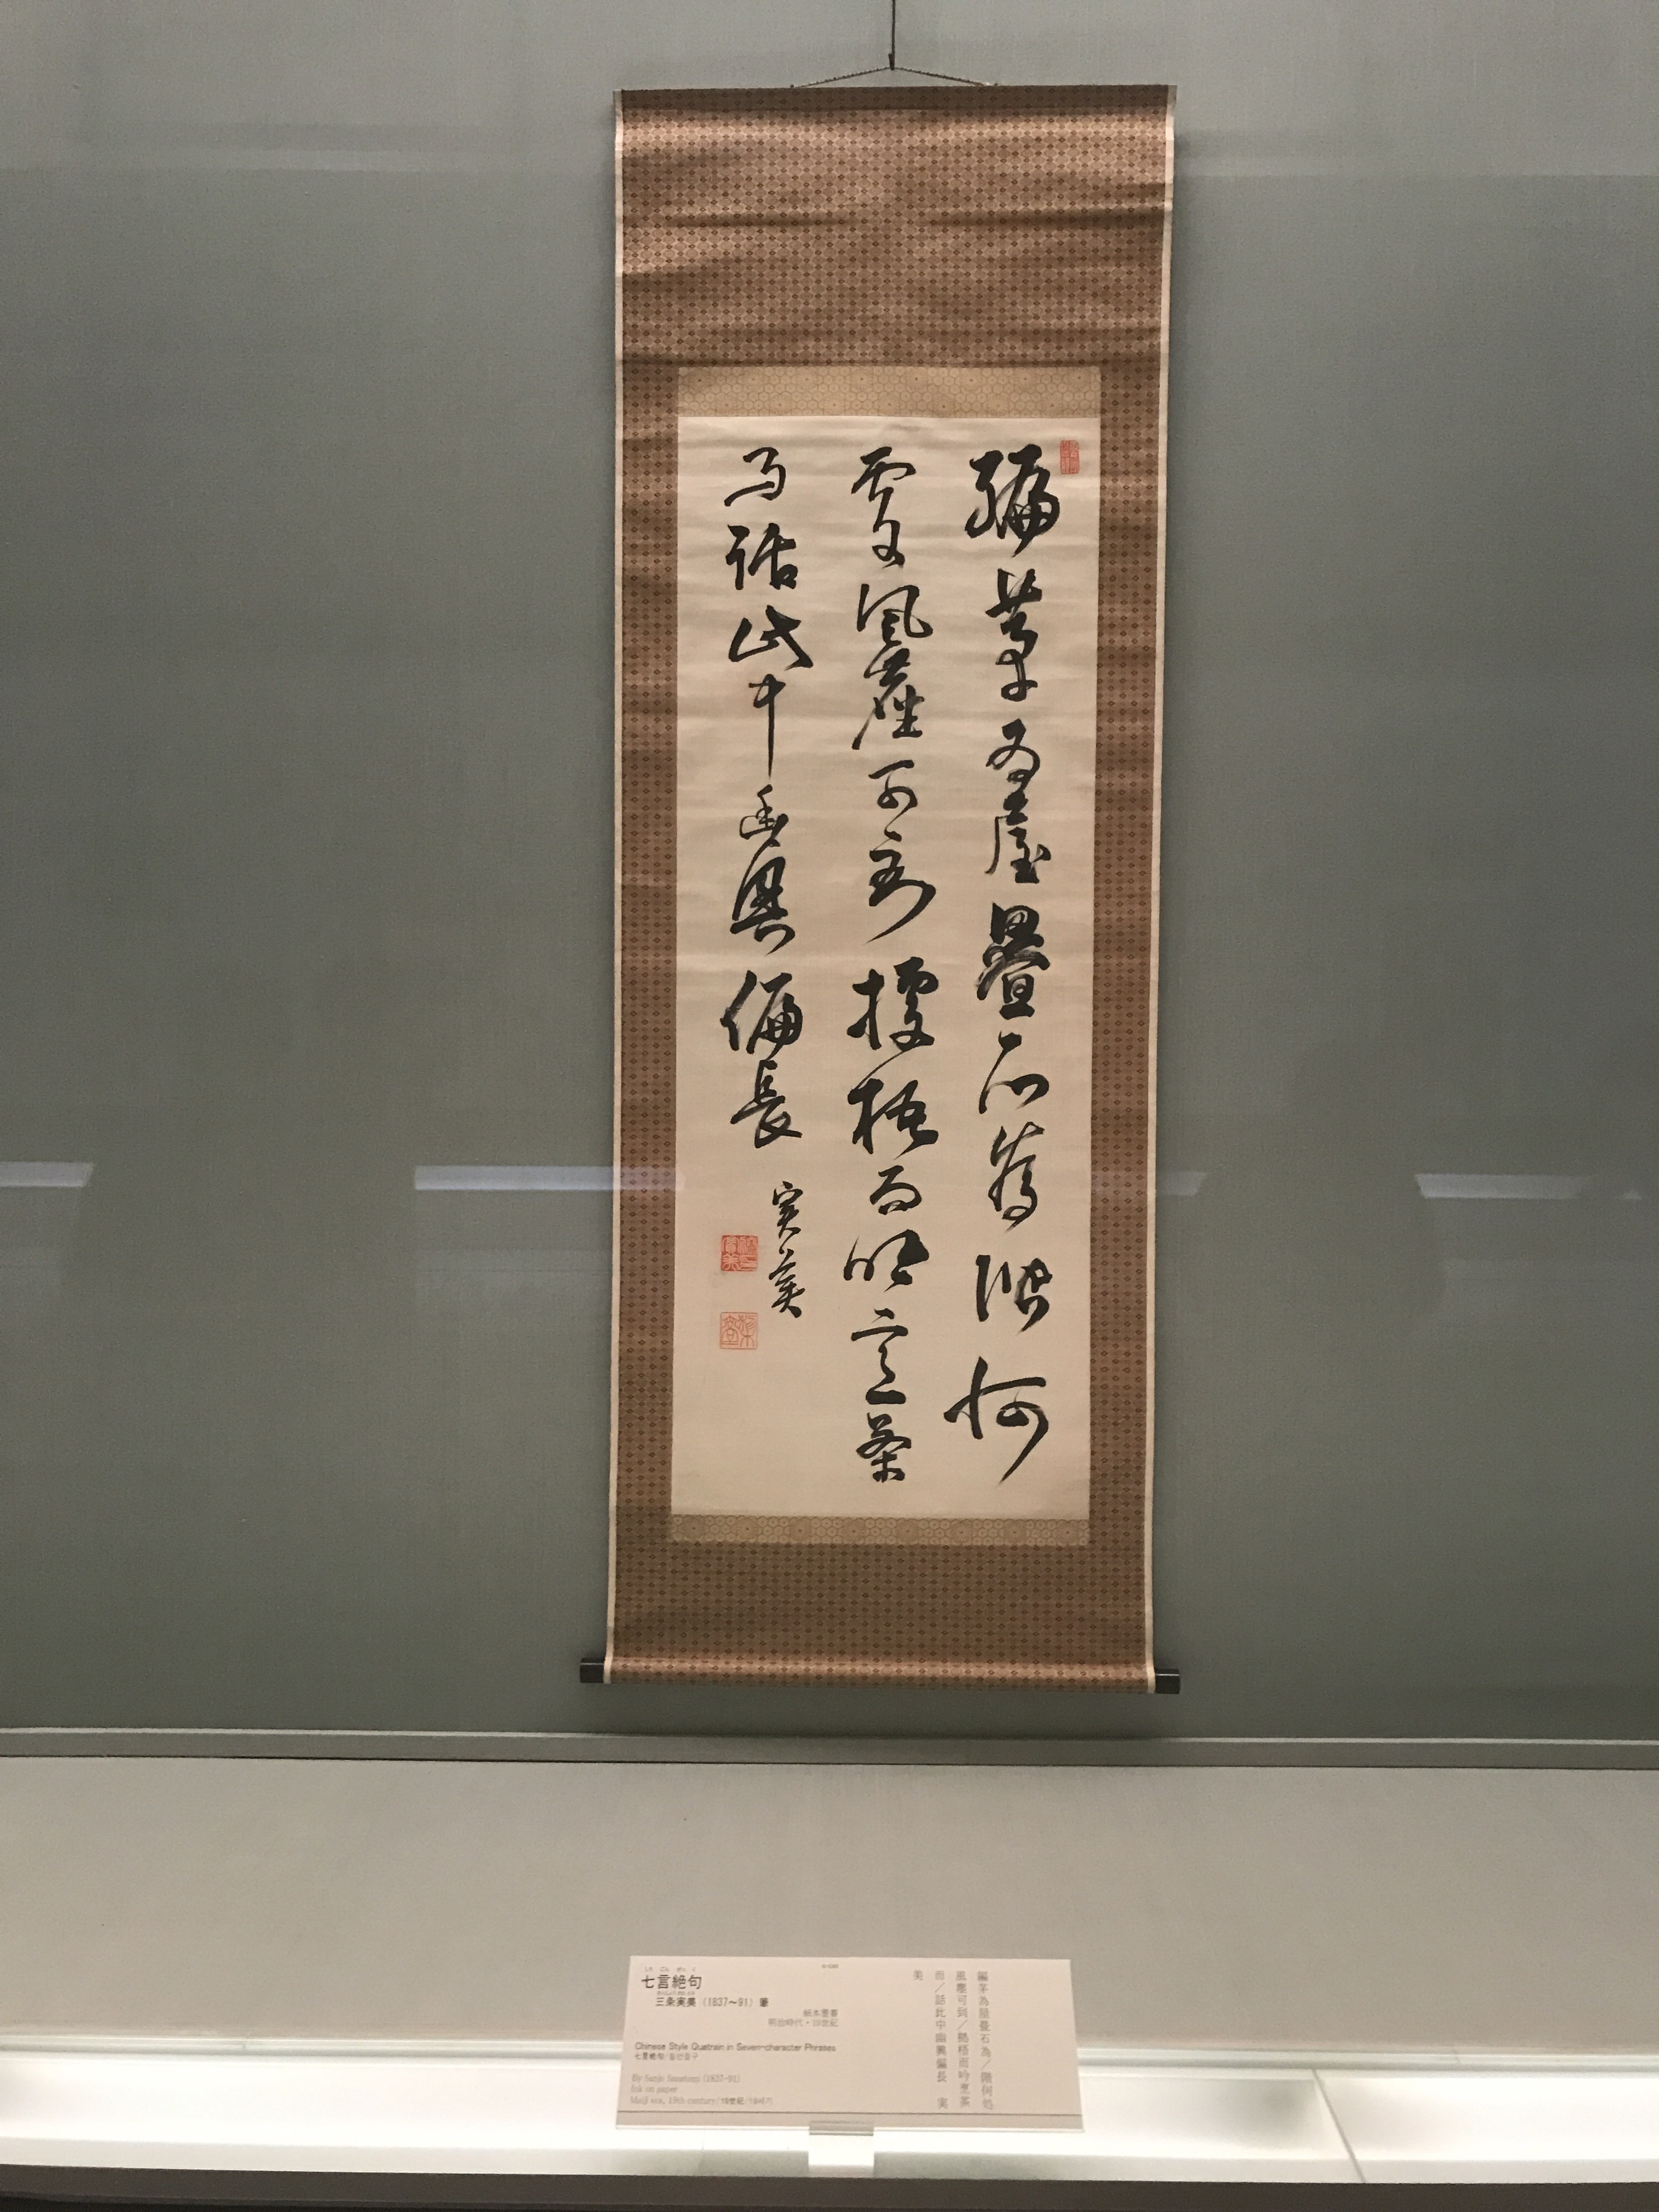 編茅為屋疊石為階何
處風塵可到據梧而吟烹茶
而話此中幽興偏長
実美
七言絶句
三条実美（1837〜91）筆
紙本墨書
明治時代・19世紀
Chinese Style Quatrain in Seven-character Phrases
七言絶句/칠언절구
By Sanjo Sanetomi (1837-91)
Ink on paper
Meiji era, 19th century/19世紀/19세기
編茅為屋畳石為／階何処
風塵可到／拠梧而吟烹茶
而／話此中幽興偏長 実
美